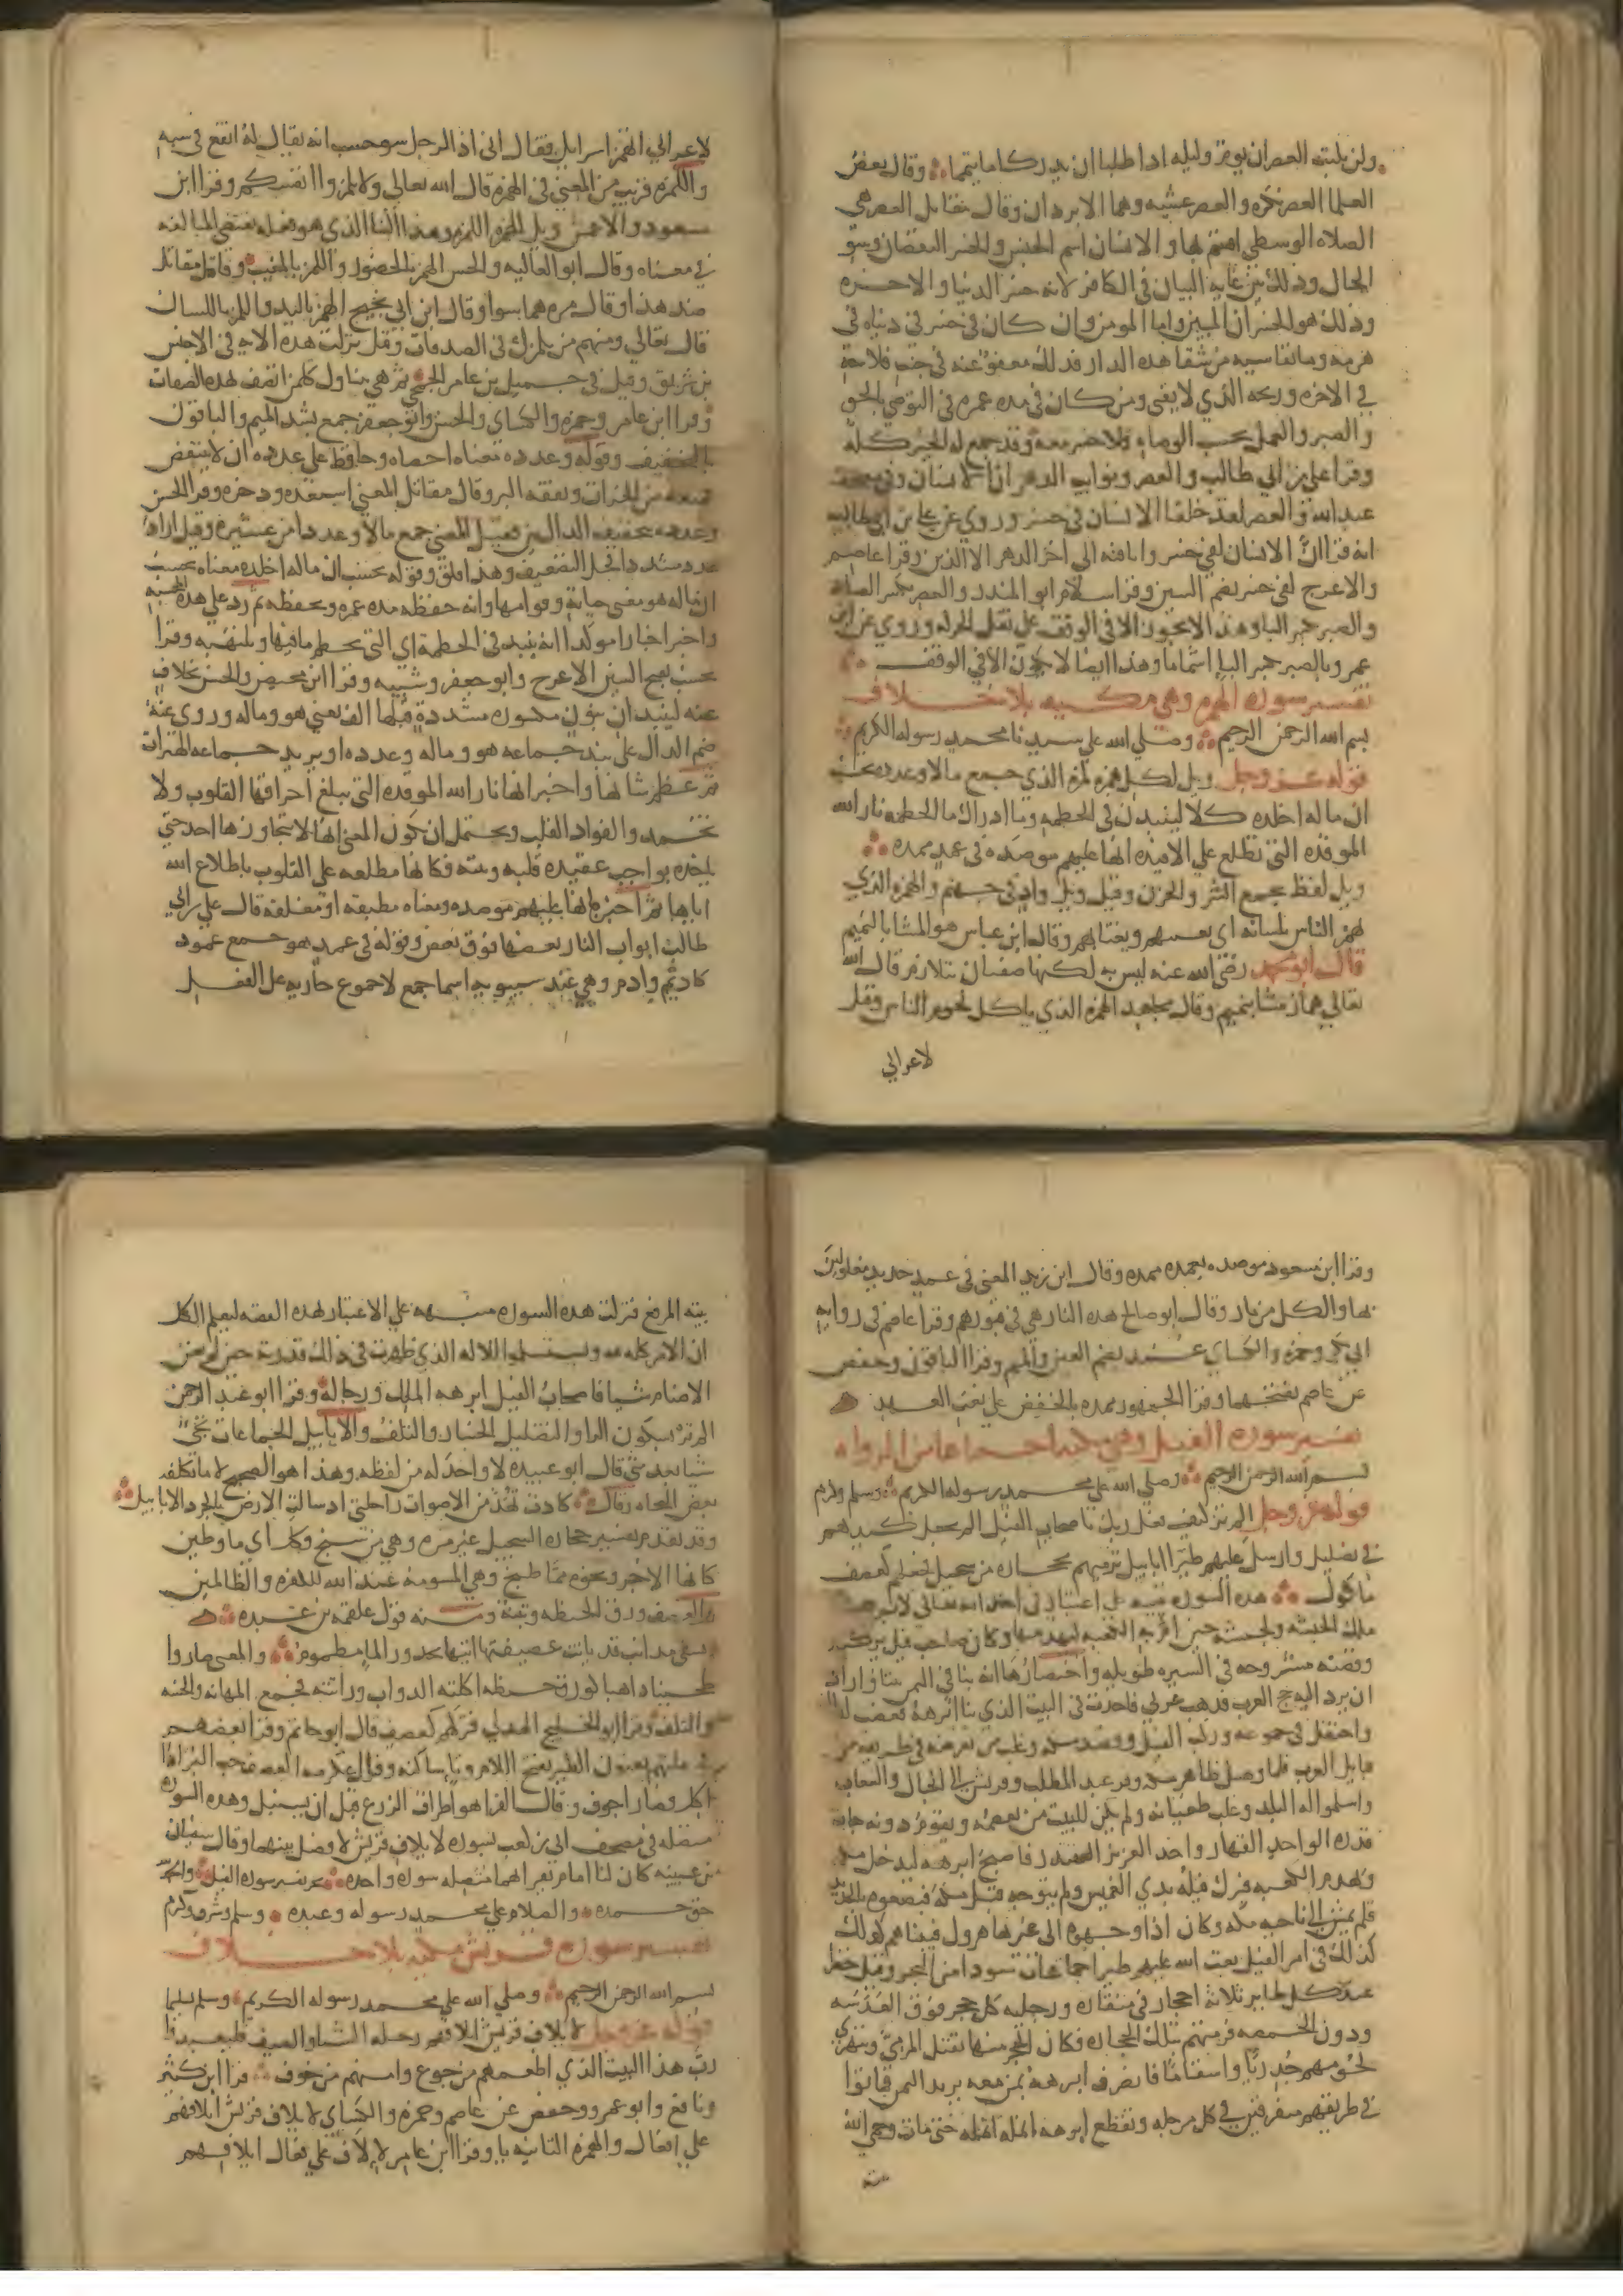 ولن يلبث العصران يوم وليله اذا طلبا ان يدركا ما تيمما وقال بعض
العلما العصر بكره والعصر عشيه وهما الابردان وقال مقاتل العصر هي
الصلاه الوسطى اقسم بها والانسان اسم الجنس والخسر النقصان وسو
الحال وذلك بين غايه البيان في الكافر لانه خسر الدنيا والاخره
وذلك هو الخسران المبين واما المومن وان كان في خسر في دنياه في
هرمه وما يقاسيه من شقا هذه الدار فذلك معفو عنه في جنب فلاحه
في الاخره وربحه الذي لا يفنى ومن كان في مده عمره في التوصي بالحق
والصبر والعمل بحسب الوصاه فلا خسر معه وقد جمع له الخير كله
وقرا علي بن ابي طالب والعصر ونوايب الدهر ان الانسان وفي مصحف
عبد الله والعصر لقد خلقنا الانسان في خسر وروي عن علي بن ابي طالب
انه قرا ان الانسان لفي خسر وانه فيه الى اخر الدهر الا الذين وقرا عاصم
والاعرج لفي خسر بضم السين وقرا سلام ابو المنذر والعصر بكسر الصاد
والصبر بكسر البا وهذا لا يجوز الا في الوقف على نقل الحركه وروي عن ابي
عمرو بالصبر بكسر البا اشماما وهذا ايضا لا يكون الا في الوقف
تفسير سوره الهمزه وهي مكيه بلا خلاف
بسم الله الرحمن الرحيم وصلى الله على سيدنا محمد رسوله الكريم
قوله عز وجل ويل لكل همزه لمزه الذي جمع مالا وعدده يحسب
ان ماله اخلده كلا لينبذن في الحطمه وما ادراك ما الحطمه نار الله
الموقده التي تطلع على الافيده انها عليهم موصده في عمد ممدده
ويل لفظ يجمع الشر والحزن وقيل ويل واد في جهنم والهمزه الذي
يهمز الناس بلسانه اي يعيبهم ويغتابهم وقال ابن عباس هو المشا بالنميم
قال ابو محمد رضي الله عنه ليس به لكنهما صفتان تتلازم قال الله
تعالى هماز مشا بنميم وقال مجاهد الهمزه الذي ياكل لحوم الناس وقيل
لاعرابي
لاعرابي اتهمز اسرايل فقال اني اذا لرجل سو حسب انه يقال له اتقع في سبه
واللمزه قريب من المعنى في الهمزه قال الله تعالى ولا تلمزوا انفسكم وقرا ابن
مسعود والاعمش ويل للهمزه اللمزه وهذا البنا الذي هو فعله يقتضي المبالغه
في معناه وقال ابو العاليه والحسن الهمز بالحضور واللمز بالمغيب وقال مقاتل
ضد هذا وقال مره هما سوا وقال ابن ابي نجيح الهمز باليد واللمز باللسان
قال تعالى ومنهم من يلمزك في الصدقات وقيل نزلت هذه الايه في الاخنس
بن شريق وقيل في جميل بن عامر الجمحي ثم هي تتناول كل من اتصف بهذه الصفات
وقرا ابن عامر وحمزه والكساي والحسن وابو جعفر جمع بشد الميم والباقون
بالتخفيف وقوله وعدده معناه احصاه وحافظ على عدده ان لا ينتقض
فمنعه من الخيرات ونفقه البر وقال مقاتل المعنى استعده ودخره وقرا الحسن
وعدده بتخفيف الدالين فقيل المعنى جمع مالا وعددا من عشيره وقيل اراد
عددا مشددا فحل التضعيف وهذا قلق وقوله يحسب ان ماله اخلده معناه يحسب
ان ماله هو معنى حياته وقوامها وانه حفظه مده عمره ويحفظه ثم رد على هذه المحسبه
واخبر اخبارا موكدا انه ينبذ في الحطمه اي التي تحطم ما فيها وتلتهبه وقرا
يحسب بفتح السين الاعرج وابو جعفر وشيبه وقرا ابن محيصن والحسن بخلاف
عنه لينبذان بنون مكسوره مشدده قبلها الف يعني هو وماله وروي عنه
ضم الدال على نبذ جماعه هو وماله وعدده او يريد جماعه الهمزات
ثم عظم شانها واخبر انها نار الله الموقده التي يبلغ احراقها القلوب ولا
تخمد والفواد القلب ويحتمل ان يكون المعنى انها لا يتجاوزها احد حتى
ياخذه بواجب عقيده قلبه ونيته فكانها مطلعه على القلوب باطلاع الله
اياها ثم اخبر بانها عليهم موصده ومعناه مطبقه او مغلقه قال علي بن ابي
طالب ابواب النار بعضها فوق بعض وقوله في عمد هو جمع عمود
كاديم وادم وهي عند سيبويه اسما جمع لا جموع جاريه على الفعل
وقرا ابن مسعود موصده بعمد ممدده وقال ابن زيد المعنى في عمد حديد مغلولين
بها والكل من نار وقال ابو صالح هذه النار هي في قبورهم وقرا عاصم في روايه
ابي بكر وحمزه والكساي عمد بضم العين والميم وقرا الباقون وحفص
عن عاصم بفتحهما وقرا الجمهور ممدده بالخفض على نعت العمد
تفسير سوره الفيل وهي مكيه اجماعا من الرواه
بسم الله الرحمن الرحيم وصلى الله على محمد رسوله الكريم وسلم وكرم
قوله عز وجل الم تر كيف فعل ربك باصحاب الفيل الم يجعل كيدهم
في تضليل وارسل عليهم طيرا ابابيل ترميهم بحجاره من سجيل فجعلهم كعصف
ماكول هذه السوره تنبيه على اعتبار في اخذ الله تعالى لابرهه
ملك الحبشه والحبشه حين ام به الكعبه ليهدمها وكان صاحب فيل يركبه
وقصته مشروحه في السيره طويله واختصارها انه بنا في اليمن بيتا واراد
ان يرد اليه حج العرب فذهب عربي فاحدث في البيت الذي بنا ابرهه فغضب لذلك
واحتفل في جموعه وركب الفيل وقصد مكه وغلب من تعرضه في طريقه من
قبايل العرب فلما وصل ظاهر مكه وفر عبد المطلب وقريش الى الجبال والشعاب
واسلموا له البلد وغلب طغيانه ولم يكن للبيت من يعصمه ويقوم دونه جات
قدره الواحد القهار واخذ العزيز المقتدر فاصبح ابرهه ليدخل مكه
ويهدم الكعبه فبرك فيله بذي الغميس ولم يتوجه قبل مكه فبضعوه بالحديد
فلم يمش الى ناحيه مكه وكان اذا وجهوه الى غيرها هرول فبينا هم كذلك
كذلك في امر الفيل بعث الله عليهم طيرا جماعات سودا من البحر وقيل خضرا
عند كل طاير ثلاثه احجار في منقاره ورجليه كل حجر فوق العدسه
ودون الحمصه فرمتهم بتلك الحجاره فكان الحجر منها يقتل المرمي وتتهرى
لحومهم جدريا واسقاما فانصرف ابرهه بمن معه يريد اليمن فماتوا
في طريقهم متفرقين في كل مرحله وتقطع ابرهه انمله انمله حتى مات وحمى الله
بيته
بيته المرفع فنزلت هذه السوره منبهه على الاعتبار بهذه القصه ليعلم الكل
ان الامر كله لله ويستسلموا للاله الذي ظهرت في ذلك قدرته حين لم تغن
الاصنام شيا فاصحاب الفيل ابرهه الملك ورجاله وقرا ابو عبد الرحمن
الم تر بسكون الرا والتضليل الخسار والتلف والابابيل الجماعات تجي
شيا بعد شي قال ابو عبيده لا واحد له من لفظه وهذا هو الصحيح لا ما تكلفه
بعض النحاه وقال كادت تهد من الاصوات راحلتي اذ سالت الارض بالجرد الابابيل
وقد تقدم تفسير حجاره السجيل غير مره وهي من سنج وكل اي ما وطين
كانها الاجر ونحوه مما طبخ وهي المسومه عند الله للكفره والظالمين
والعصف ورق الحنطه وتبنه ومنه قول علقمه بن عبده
تسقي مذانب قد مالت عصيفتها حدورها من اتي الما مطموم والمعنى صاروا
طحينا ذاهبا كورق حنطه اكلته الدواب وراثته فجمع المهانه والخسه
والتلف وقرا ابو الخليج الهذلي فتركهم كعصف قال ابو حاتم وقرا بعضهم
اكل وصار اجوف وقال الفرا هو اطراف الزرع قبل ان يسنبل وهذه السوره
متصله في مصحف ابي بن كعب بسوره لايلاف قريش لا فصل بينهما وقال سفيان
بن عيينه كان لنا امام يقراهما متصله سوره واحده تم تفسير سوره الفيل والحمد
حق حمده والصلاه على محمد رسوله وعبده وسلم وشرف وكرم
تفسير سوره قريش مكيه بلا خلاف
بسم الله الرحمن الرحيم وصلى الله على محمد رسوله الكريم وسلم تسليما
قوله عز وجل لايلاف قريش ايلافهم رحله الشتا والصيف فليعبدوا
رب هذا البيت الذي اطعمهم من جوع وامنهم من خوف قرا ابن كثير
ونافع وابو عمرو وحفص عن عاصم وحمزه والكساي لايلاف قريش ايلافهم
على افعال والهمزه الثانيه يا وقرا ابن عامر لالاف على فعال ايلافهم